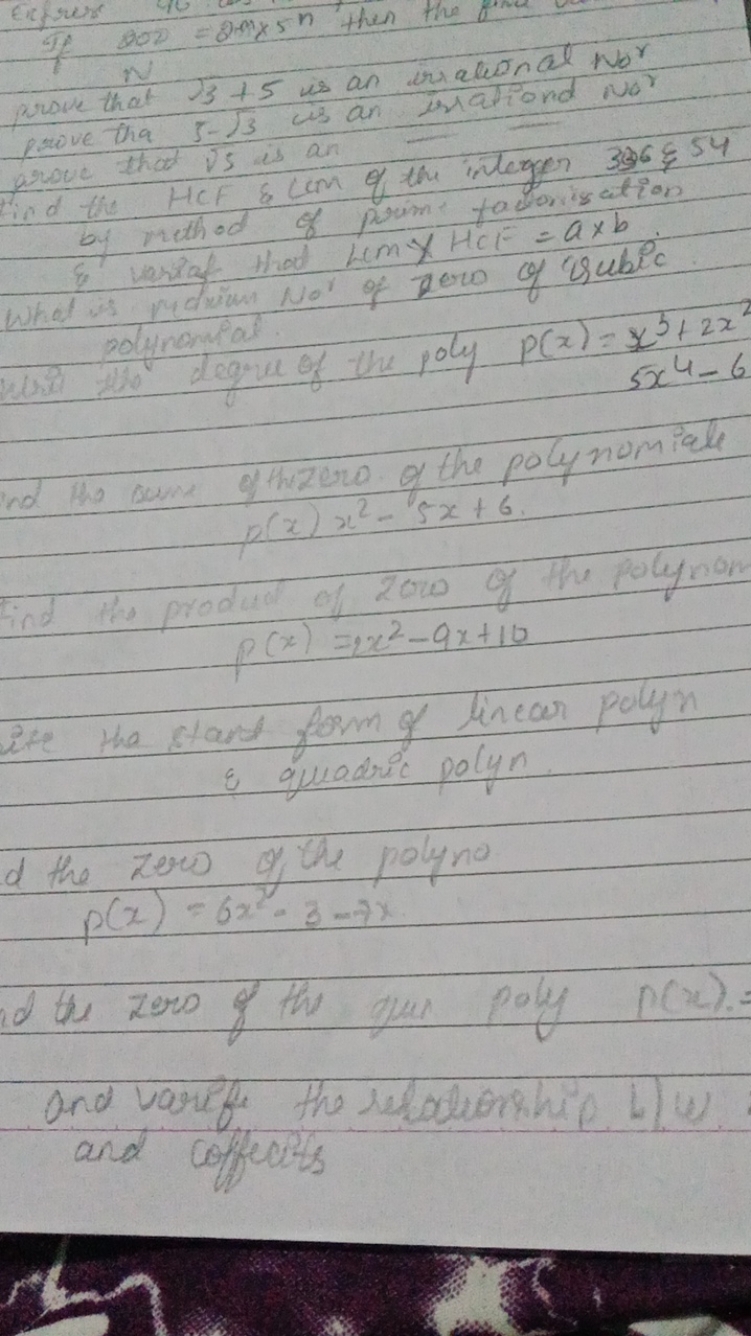 Express
If 200 = 2m x 5n then the find
N
prove that √3 + 5 is an irrational Nor
prove tha 5-√3 is an irrationd Nor
prove that √5 is an — —
find the HCF & Lcm of the integer 336 & 54
by method of prime factorisation
& that Lcm x HCF = a x b.
What is Nor of zero of cubic
polynomial.
the degree of the poly p(x) = x3 + 2x2
5x4 - 6
nd the sum of the zero of the polynomiale
p(x) x2 - 5x + 6.
find the product of zero of the polynom
p(x) = 2x2 - 9x + 10
ite the stand form of linear polyn
& quadric polyn.
d the zero of the polyno
p(x) = 6x2 - 3 - 7x.
nd the zero of the poly p(x) =
and varife the relationship b/w
and